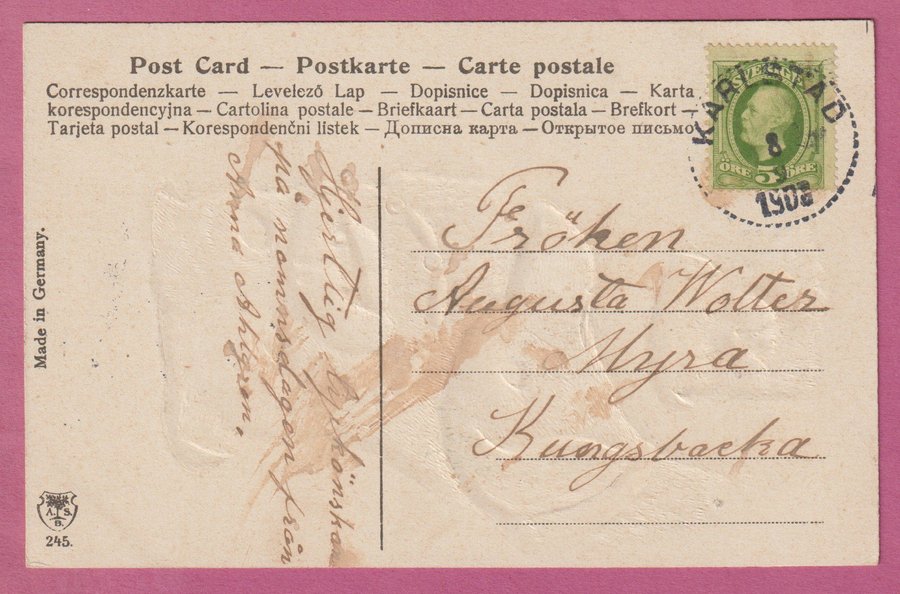 Post Card — Postkarte — Carte postale
Correspondenzkarte — Levelező Lap — Dopisnice — Dopisnica — Karta
korespondencyjna — Cartolina postale — Briefkaart — Carta postala — Brefkort —
Tarjeta postal — Korespondenční lístek — Дописна карта — Открытое письмо
SVERIGE
ÖRE 5 ÖRE
KARLSTAD
8
1
1908
Hjertlig lyckönskan
på namnsdagen från
Anna Ahlgren.
Fröken
Augusta Wolter
Myra
Kungsbacka
Made in Germany.
A. S.
B.
245.